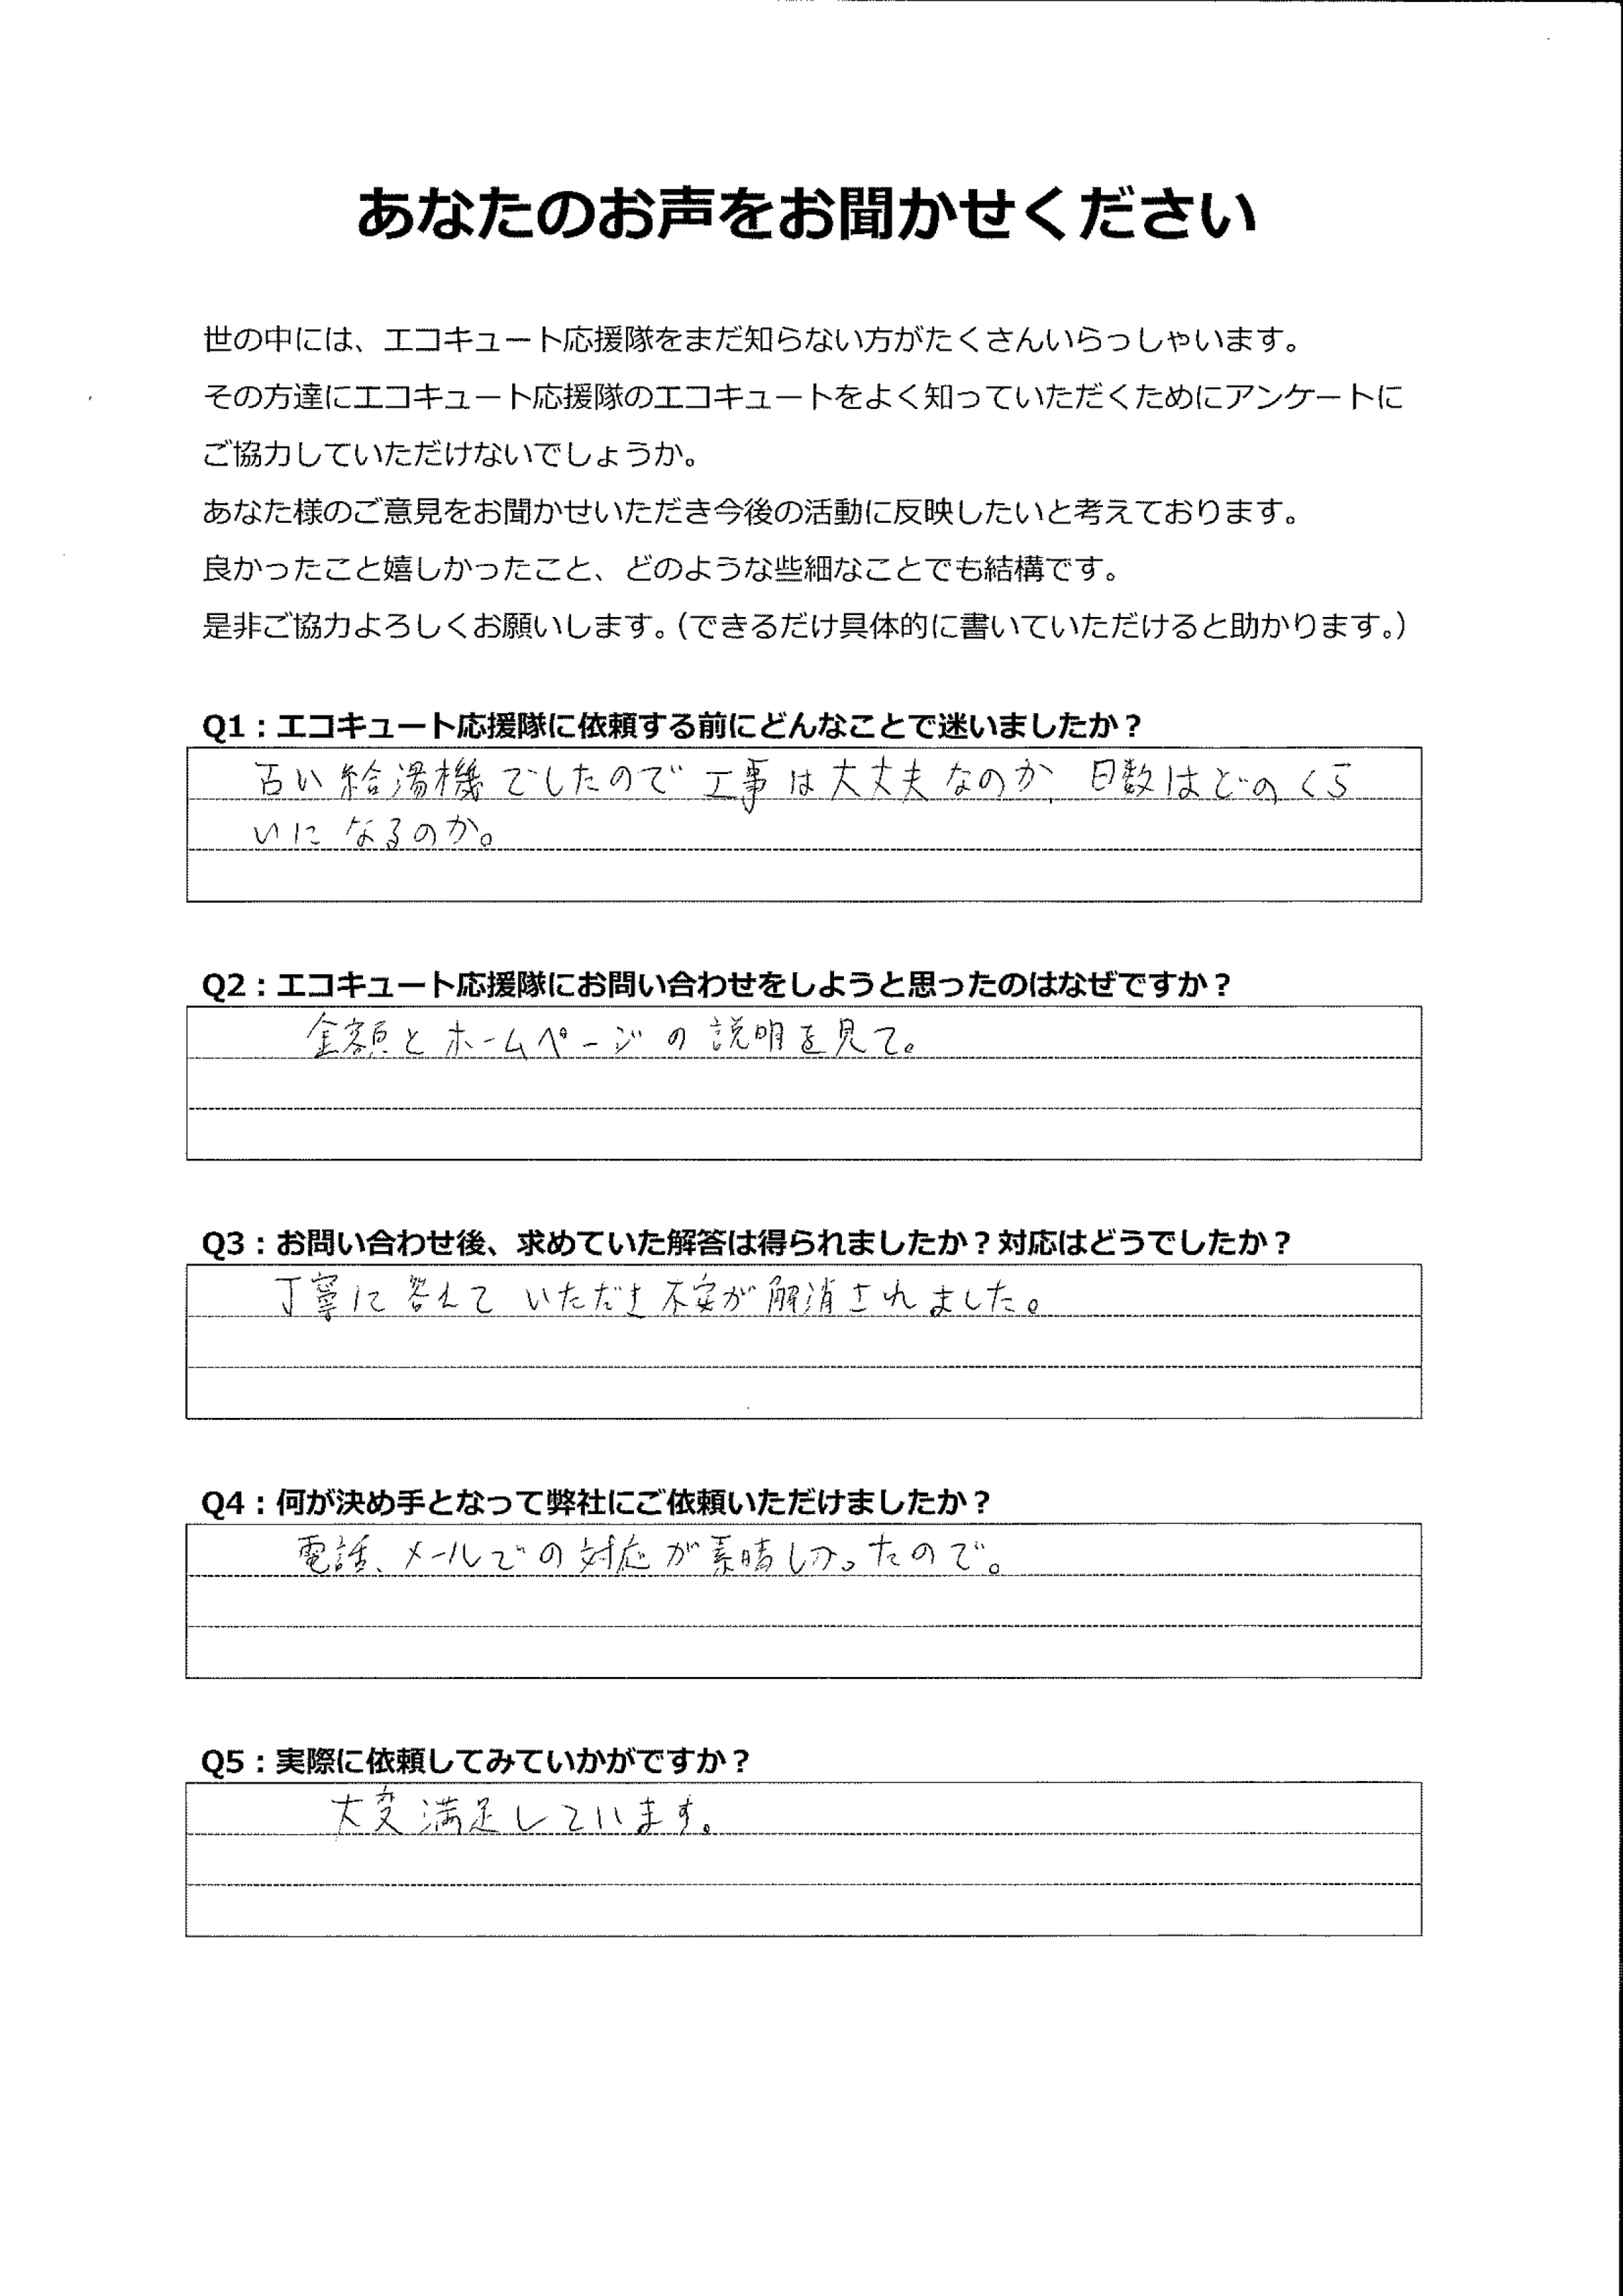 あなたのお声をお聞かせください
世の中には、エコキュート応援隊をまだ知らない方がたくさんいらっしゃいます。
その方達にエコキュート応援隊のエコキュートをよく知っていただくためにアンケートに
ご協力していただけないでしょうか。
あなた様のご意見をお聞かせいただき今後の活動に反映したいと考えております。
良かったこと嬉しかったこと、どのような些細なことでも結構です。
是非ご協力よろしくお願いします。（できるだけ具体的に書いていただけると助かります。）
Q1：エコキュート応援隊に依頼する前にどんなことで迷いましたか？
古い給湯機でしたので工事は大丈夫なのか、日数はどのくら
いになるのか。
Q2：エコキュート応援隊にお問い合わせをしようと思ったのはなぜですか？
金額とホームページの説明を見て。
Q3：お問い合わせ後、求めていた解答は得られましたか？対応はどうでしたか？
丁寧に答えていただき不安が解消されました。
Q4：何が決め手となって弊社にご依頼いただけましたか？
電話、メールでの対応が素晴しかったので。
Q5：実際に依頼してみていかがですか？
大変満足しています。